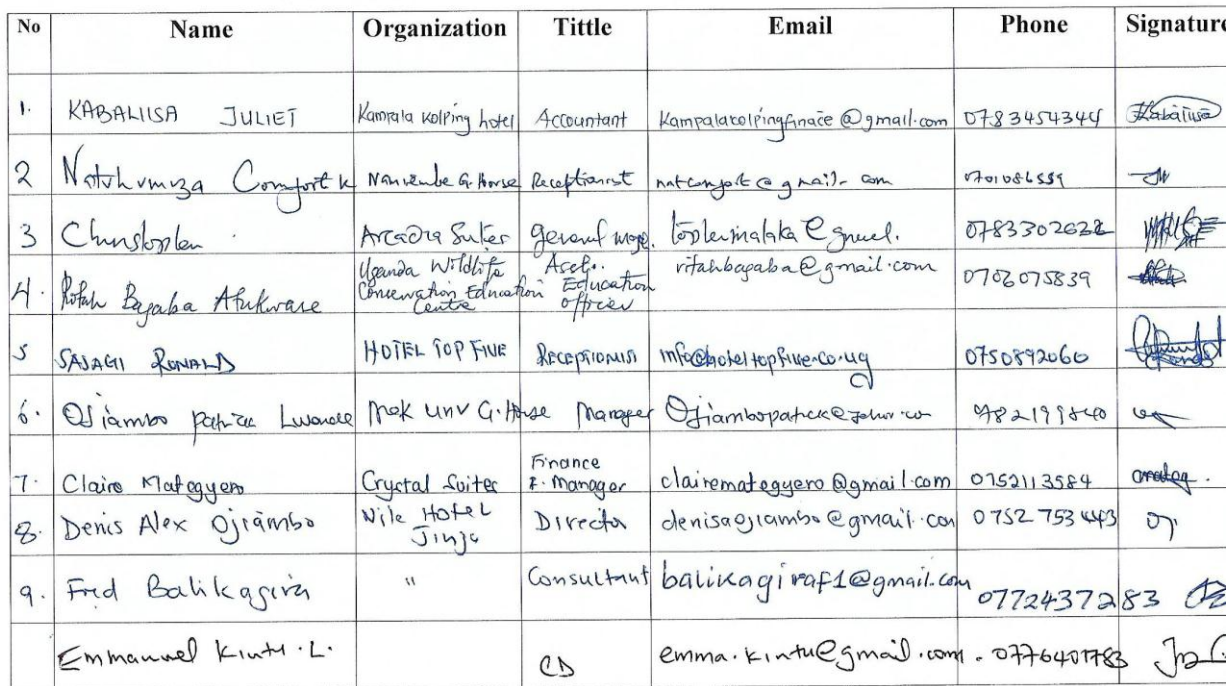 No Name Organization Tittle Email Phone Signature
1. KABALIISA JULIET Kampala Kolping hotel Accountant Kampalakolpingfinace@gmail.com 0783454344 Kabaliisa
2 Comfort K G. House Receptionist natcomfort@gmail.com 0701086559
3 Arcadia Suites 0783302622
4. Bagaba Atukwase Uganda Wildlife Conservation Education Centre Asst. Education officer ritahbagaba@gmail.com 0702075839
5 RONALD HOTEL TOP FIVE RECEPTIONIST info@hoteltopfive.co.ug 0750892060
6. Ojiambo Patrick Mak Unv G. House Manager 0782199840
7. Claire Mategyero Crystal Suites Finance F. Manager clairemategyero@gmail.com 0752113584
8. Denis Alex Ojiambo Nile Hotel Jinja Director denisaojiambo@gmail.com 0752753443
9. Fred Balikagira " Consultant balikagiraf1@gmail.com 0772437283
Emmanuel Kintu .L. CD emma.kintu@gmail.com. 0776401783